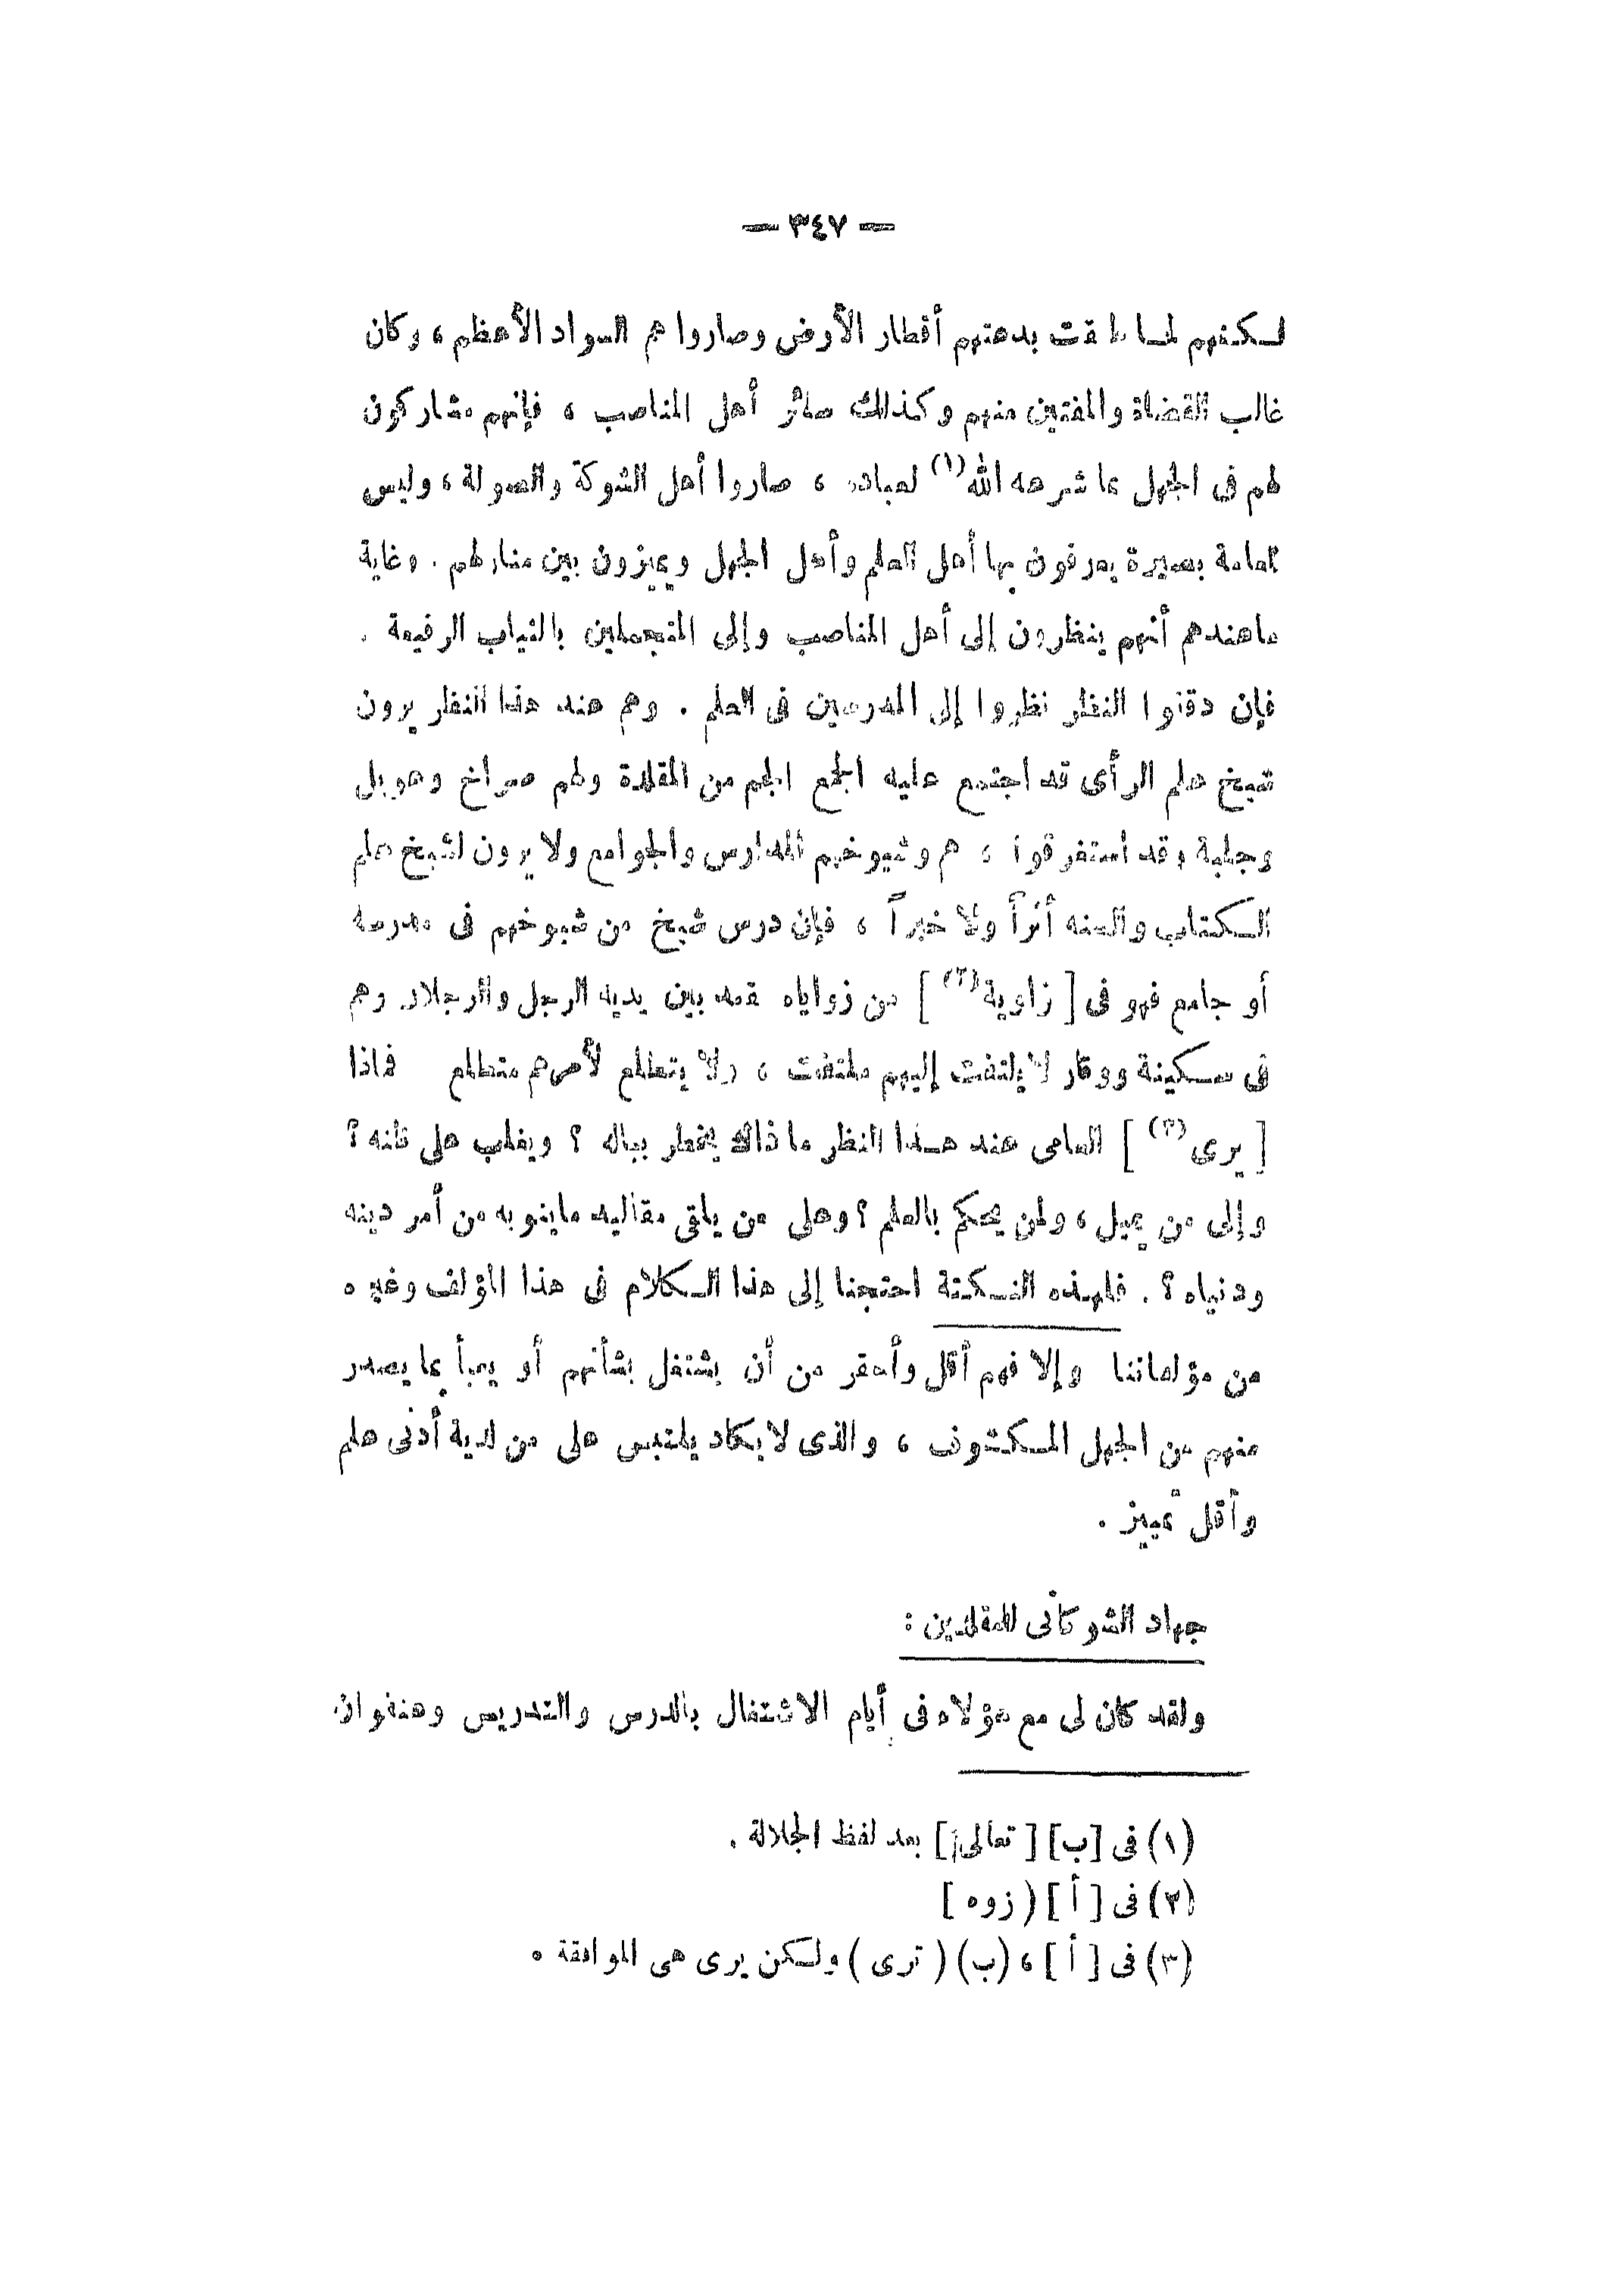 — ٣٤٧ —
لكنهم لما طبقت بدعتهم أقطار الأرض وصاروا هم السواد الأعظم ، وكان
غالب القضاة والمفتين منهم وكذلك سائر أهل المناصب ، فإنهم مشاركون
لهم فى الجهل بما شرعه الله(١) لعباده ، صاروا أهل الشوكة والصولة ، وليس
للعامة بصيرة يعرفون بها أهل العلم وأهل الجهل ويميزون بين منازلهم . وغاية
ماعندهم أنهم ينظرون إلى أهل المناصب وإلى المتجملين بالثياب الرفيعة .
فإن دققوا النظر نظروا إلى المدرسين فى العلم . وهم عند هذا النظر يرون
شيخ علم الرأى قد اجتمع عليه الجمع الجم من المقلدة ولهم صراخ وعويل
وجلبة وقد استغرقوا ، هم وشيوخهم المدارس والجوامع ولا يرون لشيخ علم
الكتاب والسنه أثراً ولا خبراً ، فإن درس شيخ من شيوخهم فى مدرسة
أو جامع فهو فى [ زاوية(٢) ] من زواياه قعد بين يديه الرجل والرجلان وهم
فى سكينة ووقار لا يلتفت إليهم ملتفت ، ولا يتطلع لأمرهم متطلع فماذا
[ يرى(٣) ] العامى عند هذا النظر ما ذاك يخطر بباله ؟ ويغلب على ظنه ؟
وإلى من يميل ، ولمن يحكم بالعلم ؟ وعلى من يلقى مقاليد ماينوبه من أمر دينه
ودنياه ؟ . فلهذه النكتة احتجنا إلى هذا الكلام فى هذا المؤلف وغيره
من مؤلفاتنا وإلا فهم أقل وأحقر من أن يشتغل بشأنهم أو يعبأ بما يصدر
منهم من الجهل المكشوف ، والذى لا يكاد يلتبس على من لدية أدنى علم
وأقل تمييز .
جهاد الشوكانى للمقلدين :
ولقد كان لى مع هؤلاء فى أيام الاشتغال بالدرس والتدريس وعنفوان
(١) فى [ب] [ تعالى ] بعد لفظ الجلالة .
(٢) فى [ أ ] ( زوه ]
(٣) فى [ أ ] ، (ب) ( ترى ) ولكن يرى هى الموافقة .